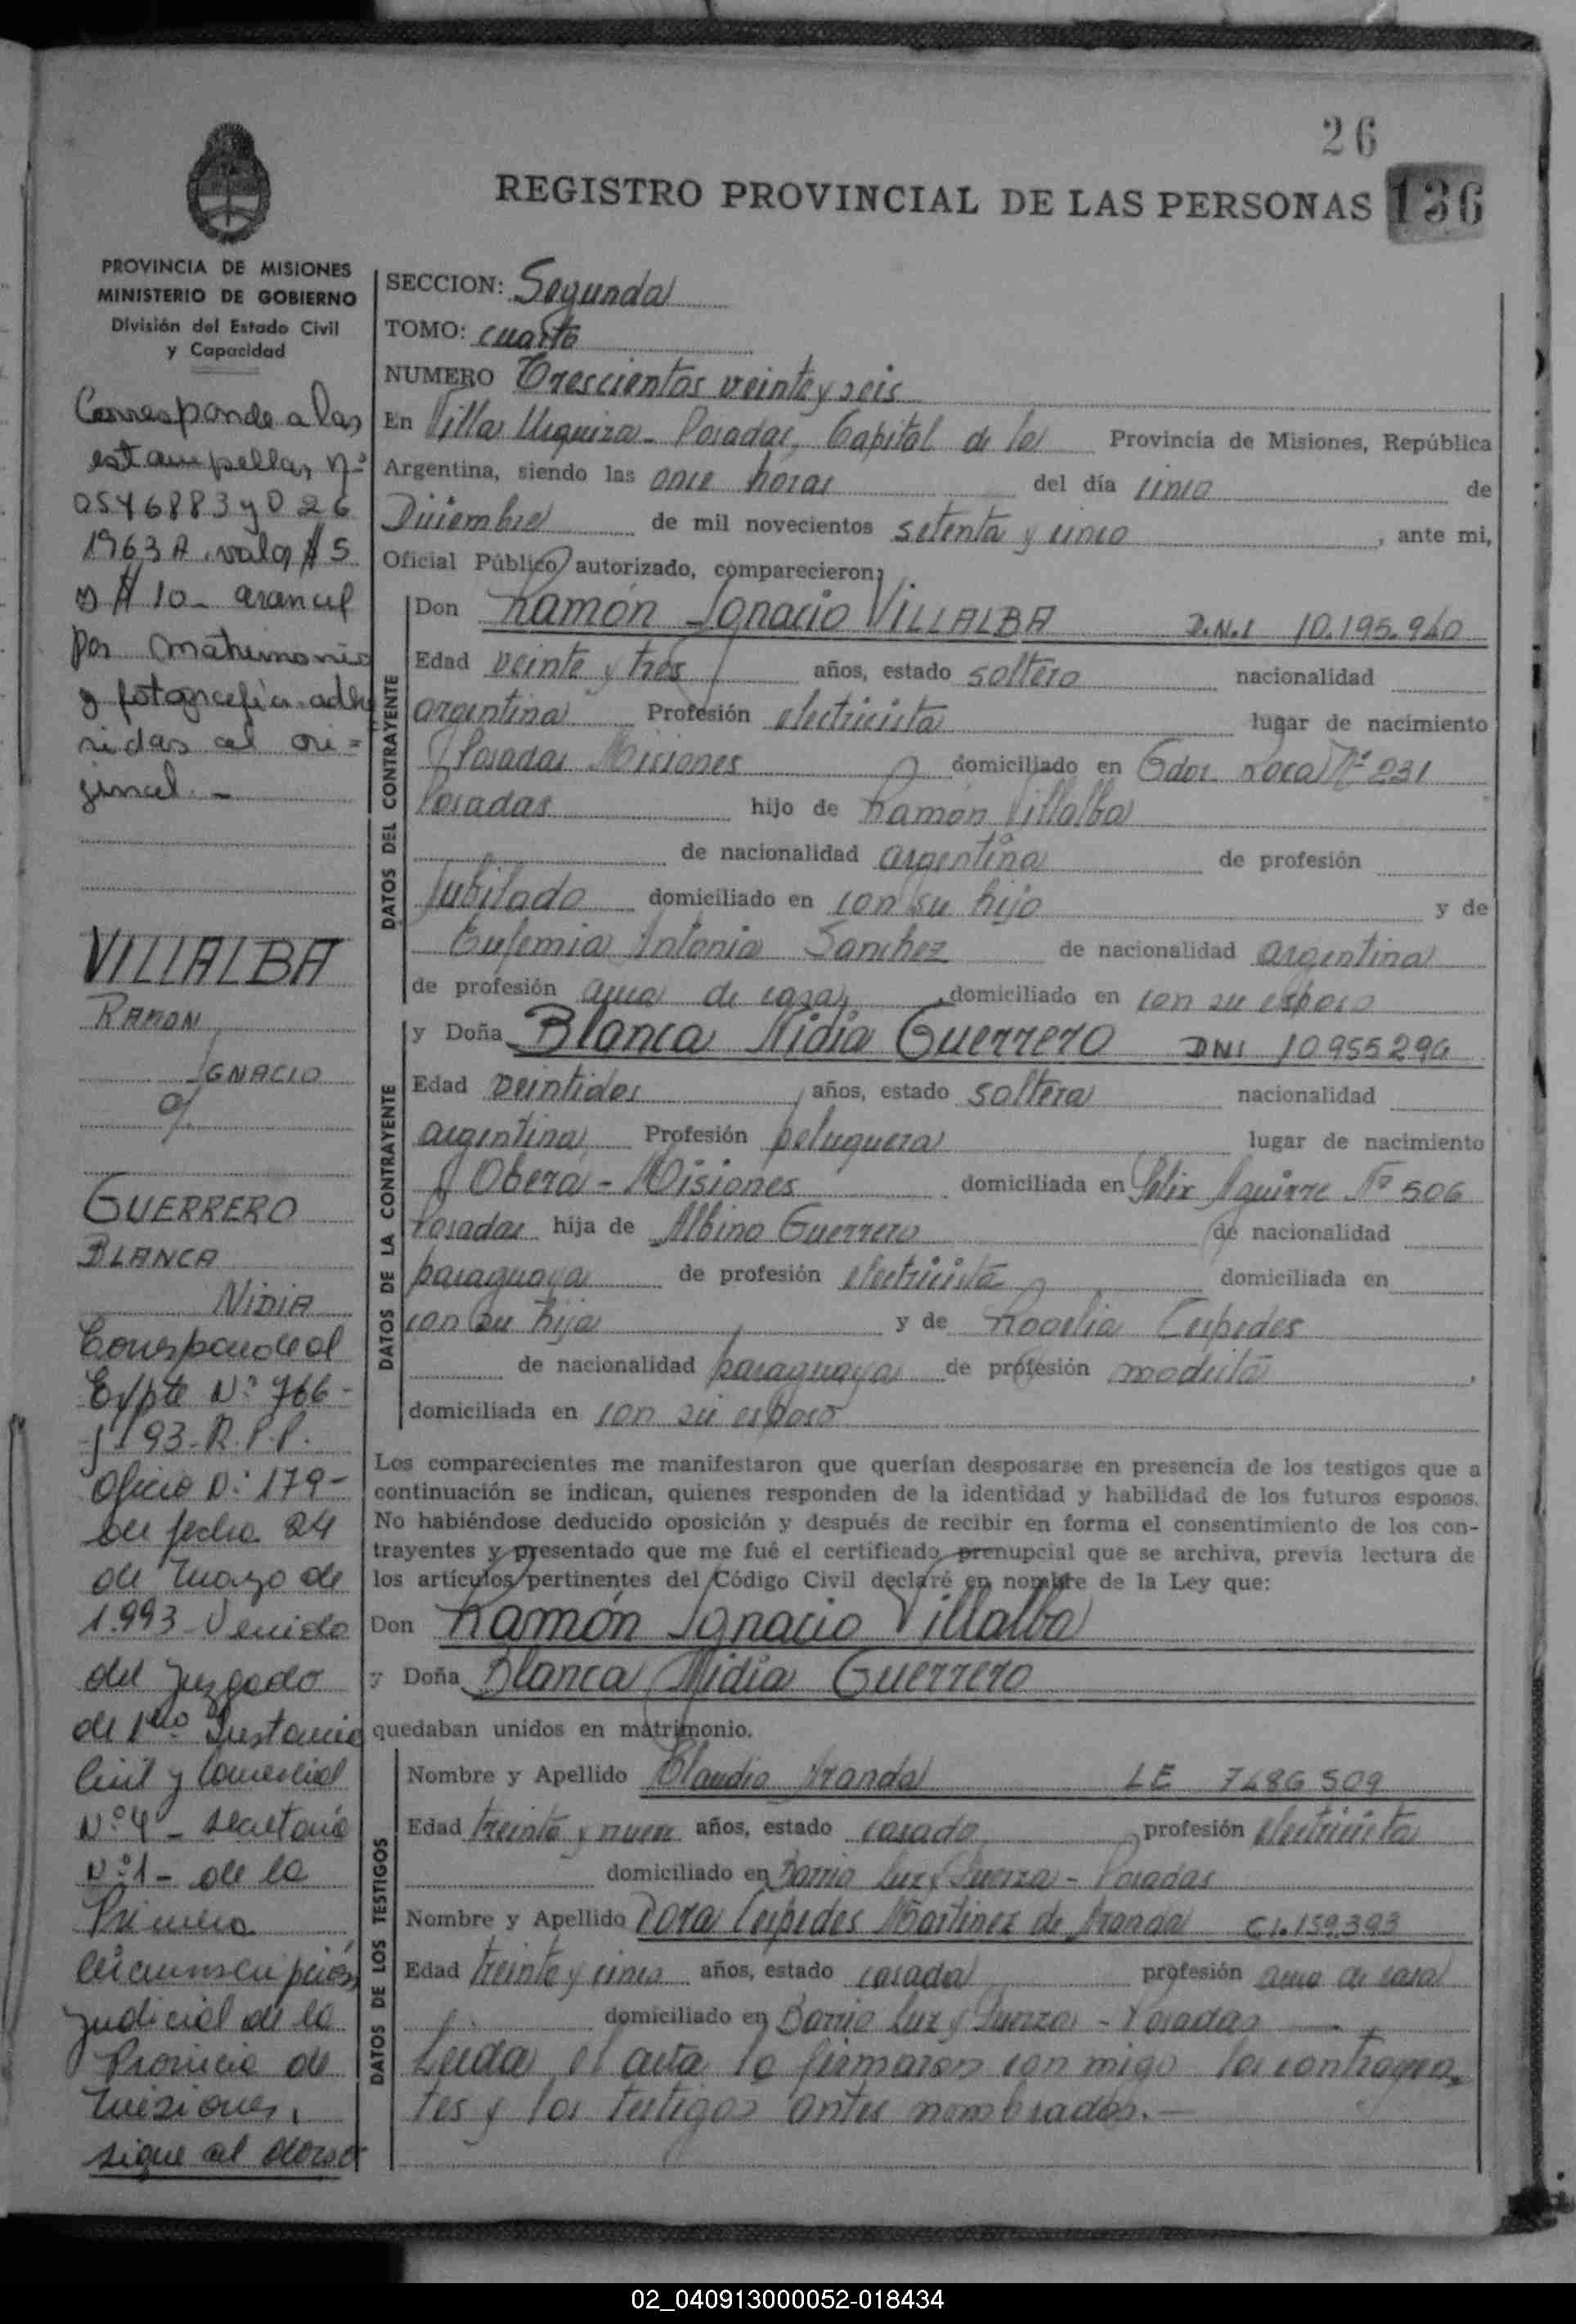 26
REGISTRO PROVINCIAL DE LAS PERSONAS 136
PROVINCIA DE MISIONES
MINISTERIO DE GOBIERNO
División del Estado Civil
y Capacidad
Corresponde a las
estampellas nº
0546883 y 026
1963 A. valor $ 5
y $ 10 - arancel
por matrimonio
y fotografía adhe
ridas al ori=
ginal. -
VILLALBA
RAMON
IGNACIO
c/
GUERRERO
BLANCA
NIDIA
Corresponde al
Expte Nº 766-
193-R.P.P.
Oficio Nº 179-
de fecha 24
de Marzo de
1.993 - Venido
del Juzgado
de 1ra Instancia
Civil y Comercial
Nº 4 - Secretaria
Nº 1 - de la
Primera
Circunscripción
Judicial de la
Provincia de
Misiones.
sigue al dorso
SECCION: Segunda
TOMO: cuarto
NUMERO Trescientos veinte y seis
En Villa Urquiza - Posadas, Capital de la Provincia de Misiones, República
Argentina, siendo las once horas del día cinco de
Diciembre de mil novecientos setenta y cinco, ante mi,
Oficial Público autorizado, comparecieron:
DATOS DEL CONTRAYENTE
Don Ramón Ignacio VILLALBA D.N.I 10.195.940
Edad veinte y tres años, estado soltero nacionalidad
argentina Profesión electricista lugar de nacimiento
Posadas Misiones domiciliado en Gdor. Roca Nº 231
Posadas hijo de Ramón Villalba
de nacionalidad argentina de profesión
Jubilado domiciliado en con su hijo y de
Eufemia Antonia Sanchez de nacionalidad argentina
de profesión ama de casa, domiciliado en con su esposo
DATOS DE LA CONTRAYENTE
y Doña Blanca Nidia Guerrero DNI 10955296
Edad veintidos años, estado soltera nacionalidad
argentina Profesión peluquera lugar de nacimiento
Obera - Misiones domiciliada en Felix Aguirre Nº 506
Posadas hija de Albino Guerrero de nacionalidad
paraguaya de profesión electricista domiciliada en
con su hija y de Rogelia Cespedes
de nacionalidad paraguaya de profesión modista,
domiciliada en con su esposo
Los comparecientes me manifestaron que querían desposarse en presencia de los testigos que a
continuación se indican, quienes responden de la identidad y habilidad de los futuros esposos.
No habiéndose deducido oposición y después de recibir en forma el consentimiento de los con-
trayentes y presentado que me fué el certificado prenupcial que se archiva, previa lectura de
los artículos pertinentes del Código Civil declaré en nombre de la Ley que:
Don Ramón Ignacio Villalba
y Doña Blanca Nidia Guerrero
quedaban unidos en matrimonio.
DATOS DE LOS TESTIGOS
Nombre y Apellido Claudio Aranda LE 7486509
Edad treinta y nueve años, estado casado profesión electricista
domiciliado en Barrio Luz y Fuerza - Posadas
Nombre y Apellido Dora Cespedes Martinez de Aranda C.I. 159.393
Edad treinta y cinco años, estado casada profesión ama de casa
domiciliado en Barrio Luz y Fuerza - Posadas
Leida el acta la firmaron con migo los contrayen-
tes y los testigos antes nombrados. -
02_040913000052-018434